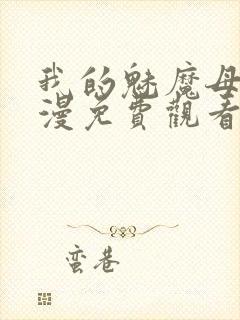 我的魅魔母
漫免費觀看
蛮巷